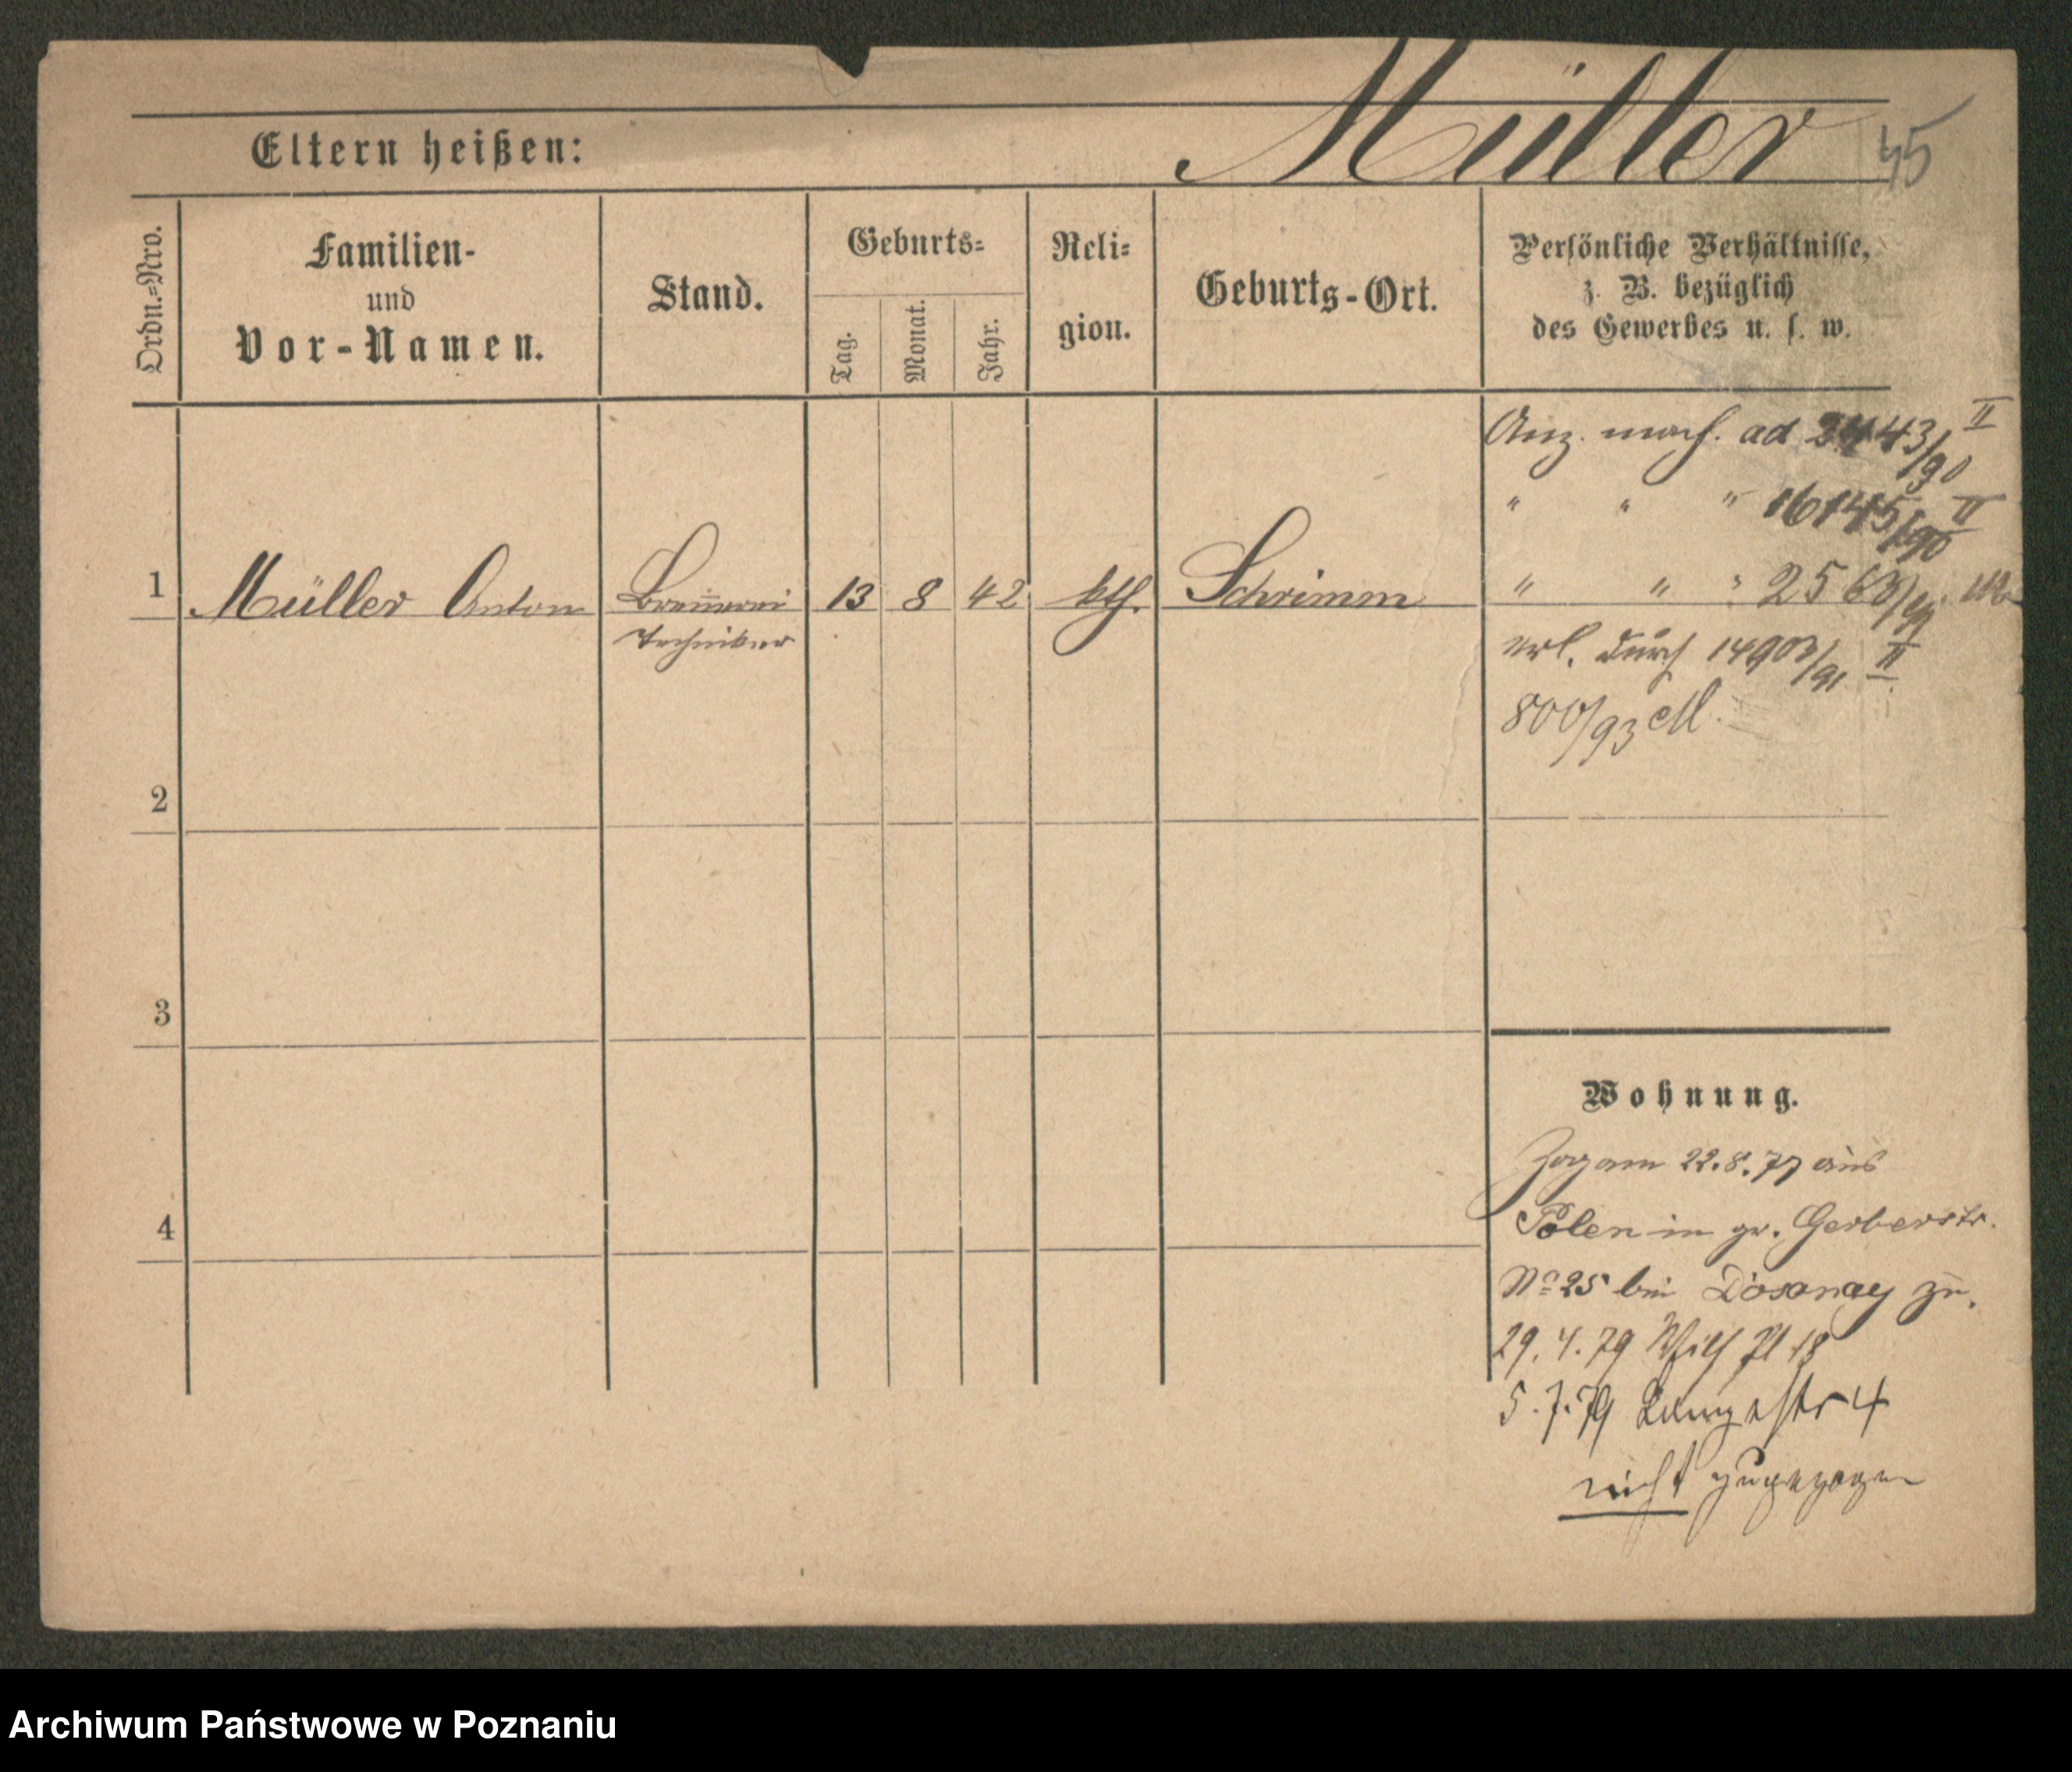 Müller
45
Eltern heißen:
Ordn.=Nro.
Familien-
und
Vor-Namen.
Stand.
Geburts=
Tag.
Monat.
Jahr.
Reli=
gion.
Geburts-Ort.
Persönliche Verhältnisse,
z. B. bezüglich
des Gewerbes u. s. w.
Anz. mach. ad 2443/90 II
" " " 16145/90 II
1 Müller Anton Brauerei 13 8 42 kth. Schrimm
" " " 2563/91
Techniker
erl. durch 14903/91 II
800/93 M.
2
3
4
Wohnung.
Zog am 22.8.77 aus
Polen in gr. Gerberstr.
No 25 bei zu.
29.4.79 Wilh Pl 18
5.7.79 Langestr 4
nicht zugezogen
Archiwum Państwowe w Poznaniu